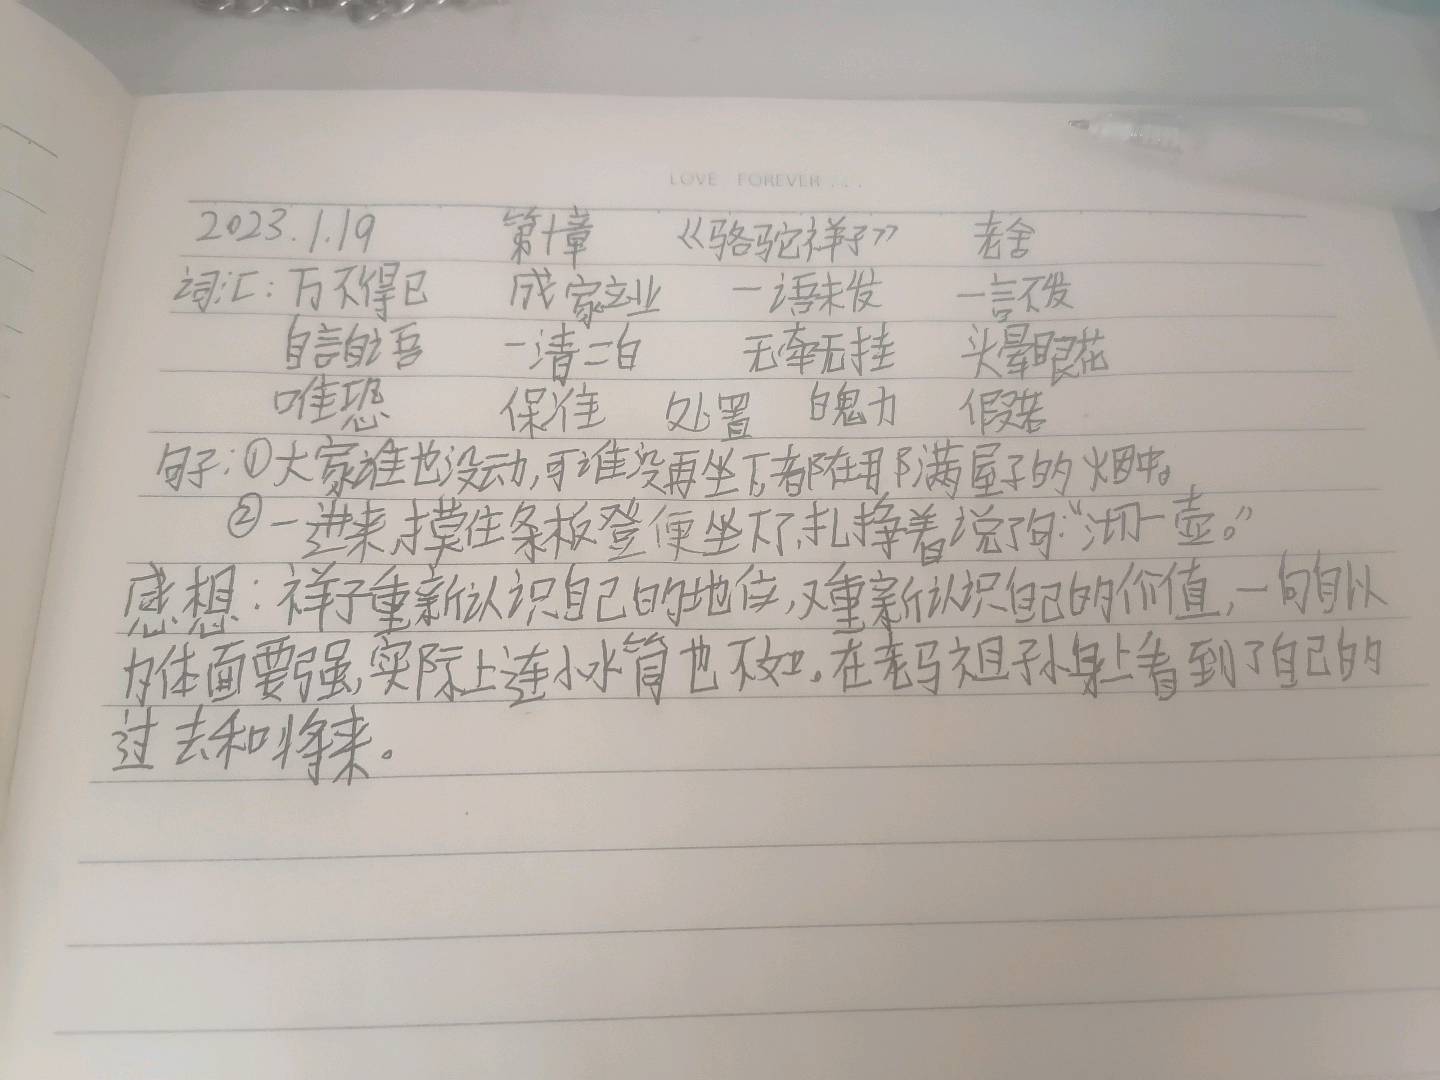 LOVE FOREVER ...
2023.1.19 第十章 《骆驼祥子》 老舍
词汇：万不得已 成家立业 一语未发 一言不发
自言自语 一清二白 无牵无挂 头晕眼花
唯恐 保准 处置 魄力 假若
句子：①大家谁也没动，可谁没再坐下，都在那满屋子的烟中。
②一进来，摸住条板登便坐下了，扎挣着说了句：“沏一壶。”
感想：祥子重新认识自己的地位，又重新认识自己的价值，一向自以
为体面要强，实际上连小水筒也不如。在老马祖子小身上看到了自己的
过去和将来。